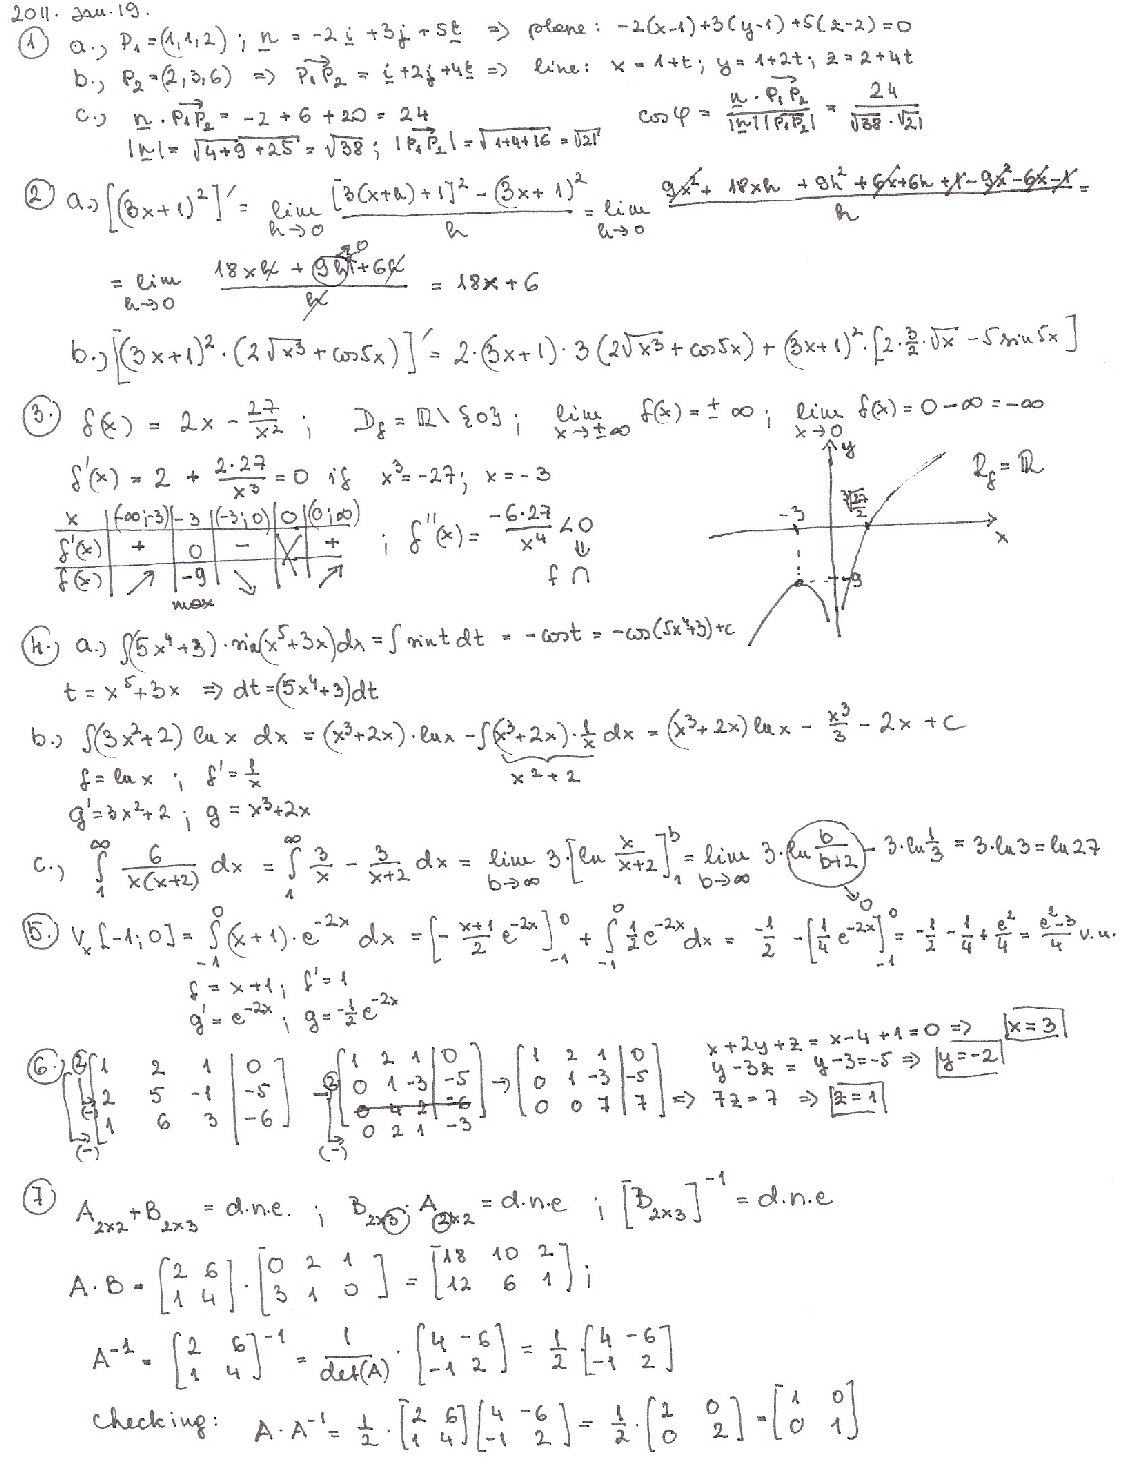 2011. Jan. 19.
① a., P₁=(1,1,2) ; n = -2i + 3j + 5k ⇒ plane: -2(x-1)+3(y-1)+5(z-2)=0
b., P₂=(2,3,6) ⇒ P₁P₂ = i+2j+4k ⇒ line: x = 1+t ; y = 1+2t ; z = 2+4t
c., n · P₁P₂ = -2 + 6 + 20 = 24 cos φ = (n · P₁P₂)/(|n||P₁P₂|) = 24/(√38 · √21)
|n| = √(4+9+25) = √38 ; |P₁P₂| = √(1+4+16) = √21
② a., [(3x+1)²]' = lim h→0 ([3(x+h)+1]² - (3x+1)²)/h = lim h→0 (9x² + 18xh + 9h² + 6x + 6h + 1 - 9x² - 6x - 1)/h =
= lim h→0 (18xh + 9h² + 6h)/h = 18x + 6
→0
b., [(3x+1)² · (2√x³ + cos5x)]' = 2·(3x+1)·3(2√x³ + cos5x) + (3x+1)²·[2·3/2·√x - 5 sin5x]
③. f(x) = 2x - 27/x² ; D_f = ℝ\{0} ; lim x→±∞ f(x) = ±∞ ; lim x→0 f(x) = 0-∞ = -∞
f'(x) = 2 + 2·27/x³ = 0 if x³ = -27 ; x = -3
y R_f = ℝ
x | (-∞;-3) | -3 | (-3;0) | 0 | (0;∞)
f'(x) | + | 0 | - | X | +
f(x) | ↗ | -9 | ↘ | | ↗
max
; f''(x) = -6·27/x⁴ < 0
⇓
f ∩
-3 ³√(27/2) x
-9
④., a., ∫(5x⁴+3)·sin(x⁵+3x)dx = ∫ sin t dt = -cos t = -cos(5x⁴+3)+c
t = x⁵+3x ⇒ dt = (5x⁴+3)dt
b., ∫(3x²+2) ln x dx = (x³+2x)·ln x - ∫(x³+2x)·1/x dx = (x³+2x) ln x - x³/3 - 2x + C
x²+2
f = ln x ; f' = 1/x
g' = 3x²+2 ; g = x³+2x
c., ∫₁^∞ 6/(x(x+2)) dx = ∫₁^∞ 3/x - 3/(x+2) dx = lim b→∞ 3·[ln x/(x+2)]₁^b = lim b→∞ 3·ln b/(b+2) - 3·ln 1/3 = 3·ln3 = ln27
→0
⑤. Vₓ[-1;0] = ∫₋₁⁰ (x+1)·e^(-2x) dx = [-(x+1)/2 e^(-2x)]₋₁⁰ + ∫₋₁⁰ 1/2 e^(-2x) dx = -1/2 - [1/4 e^(-2x)]₋₁⁰ = -1/2 - 1/4 + e²/4 = (e²-3)/4 v.u.
f = x+1 ; f' = 1
g' = e^(-2x) ; g = -1/2 e^(-2x)
⑥., ② [1 2 1 | 0] ② [1 2 1 | 0] → [1 2 1 | 0] x+2y+z = x-4+1=0 ⇒ x=3
(-) [2 5 -1 | -5] [0 1 -3 | -5] [0 1 -3 | -5] y-3z = y-3=-5 ⇒ y=-2
[1 6 3 | -6] [0 4 2 | -6] [0 0 7 | 7] ⇒ 7z=7 ⇒ z=1
(-) 0 2 1 -3
(-)
⑦ A₂ₓ₂ + B₂ₓ₃ = d.n.e. ; B₂ₓ₃ · A₂ₓ₂ = d.n.e ; [B₂ₓ₃]⁻¹ = d.n.e
A·B = [2 6; 1 4]·[0 2 1; 3 1 0] = [18 10 2; 12 6 1] ;
A⁻¹ = [2 6; 1 4]⁻¹ = 1/det(A) · [4 -6; -1 2] = 1/2 · [4 -6; -1 2]
Checking: A·A⁻¹ = 1/2 · [2 6; 1 4][4 -6; -1 2] = 1/2 · [2 0; 0 2] = [1 0; 0 1]